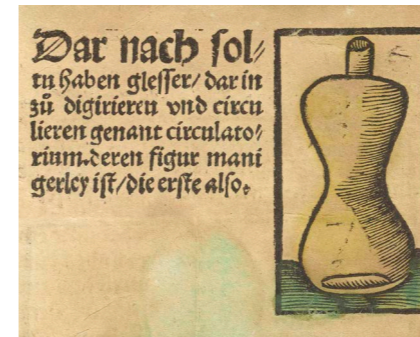 Dar nach sol/
tu haben glesser/ dar in
zů digirieren vnd circu
lieren genant circulato/
rium.deren figur mani
gerley ist/die erste also.